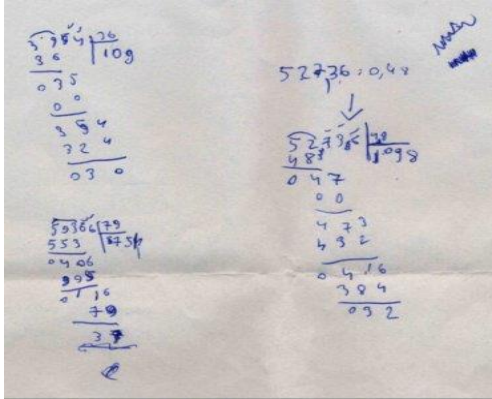 5954 36
36 109
035
00
354
324
030
59366 79
553 751
0406
395
0116
79
37
52736 : 0,48
52736 48
48 1098
047
00
473
432
0416
384
032